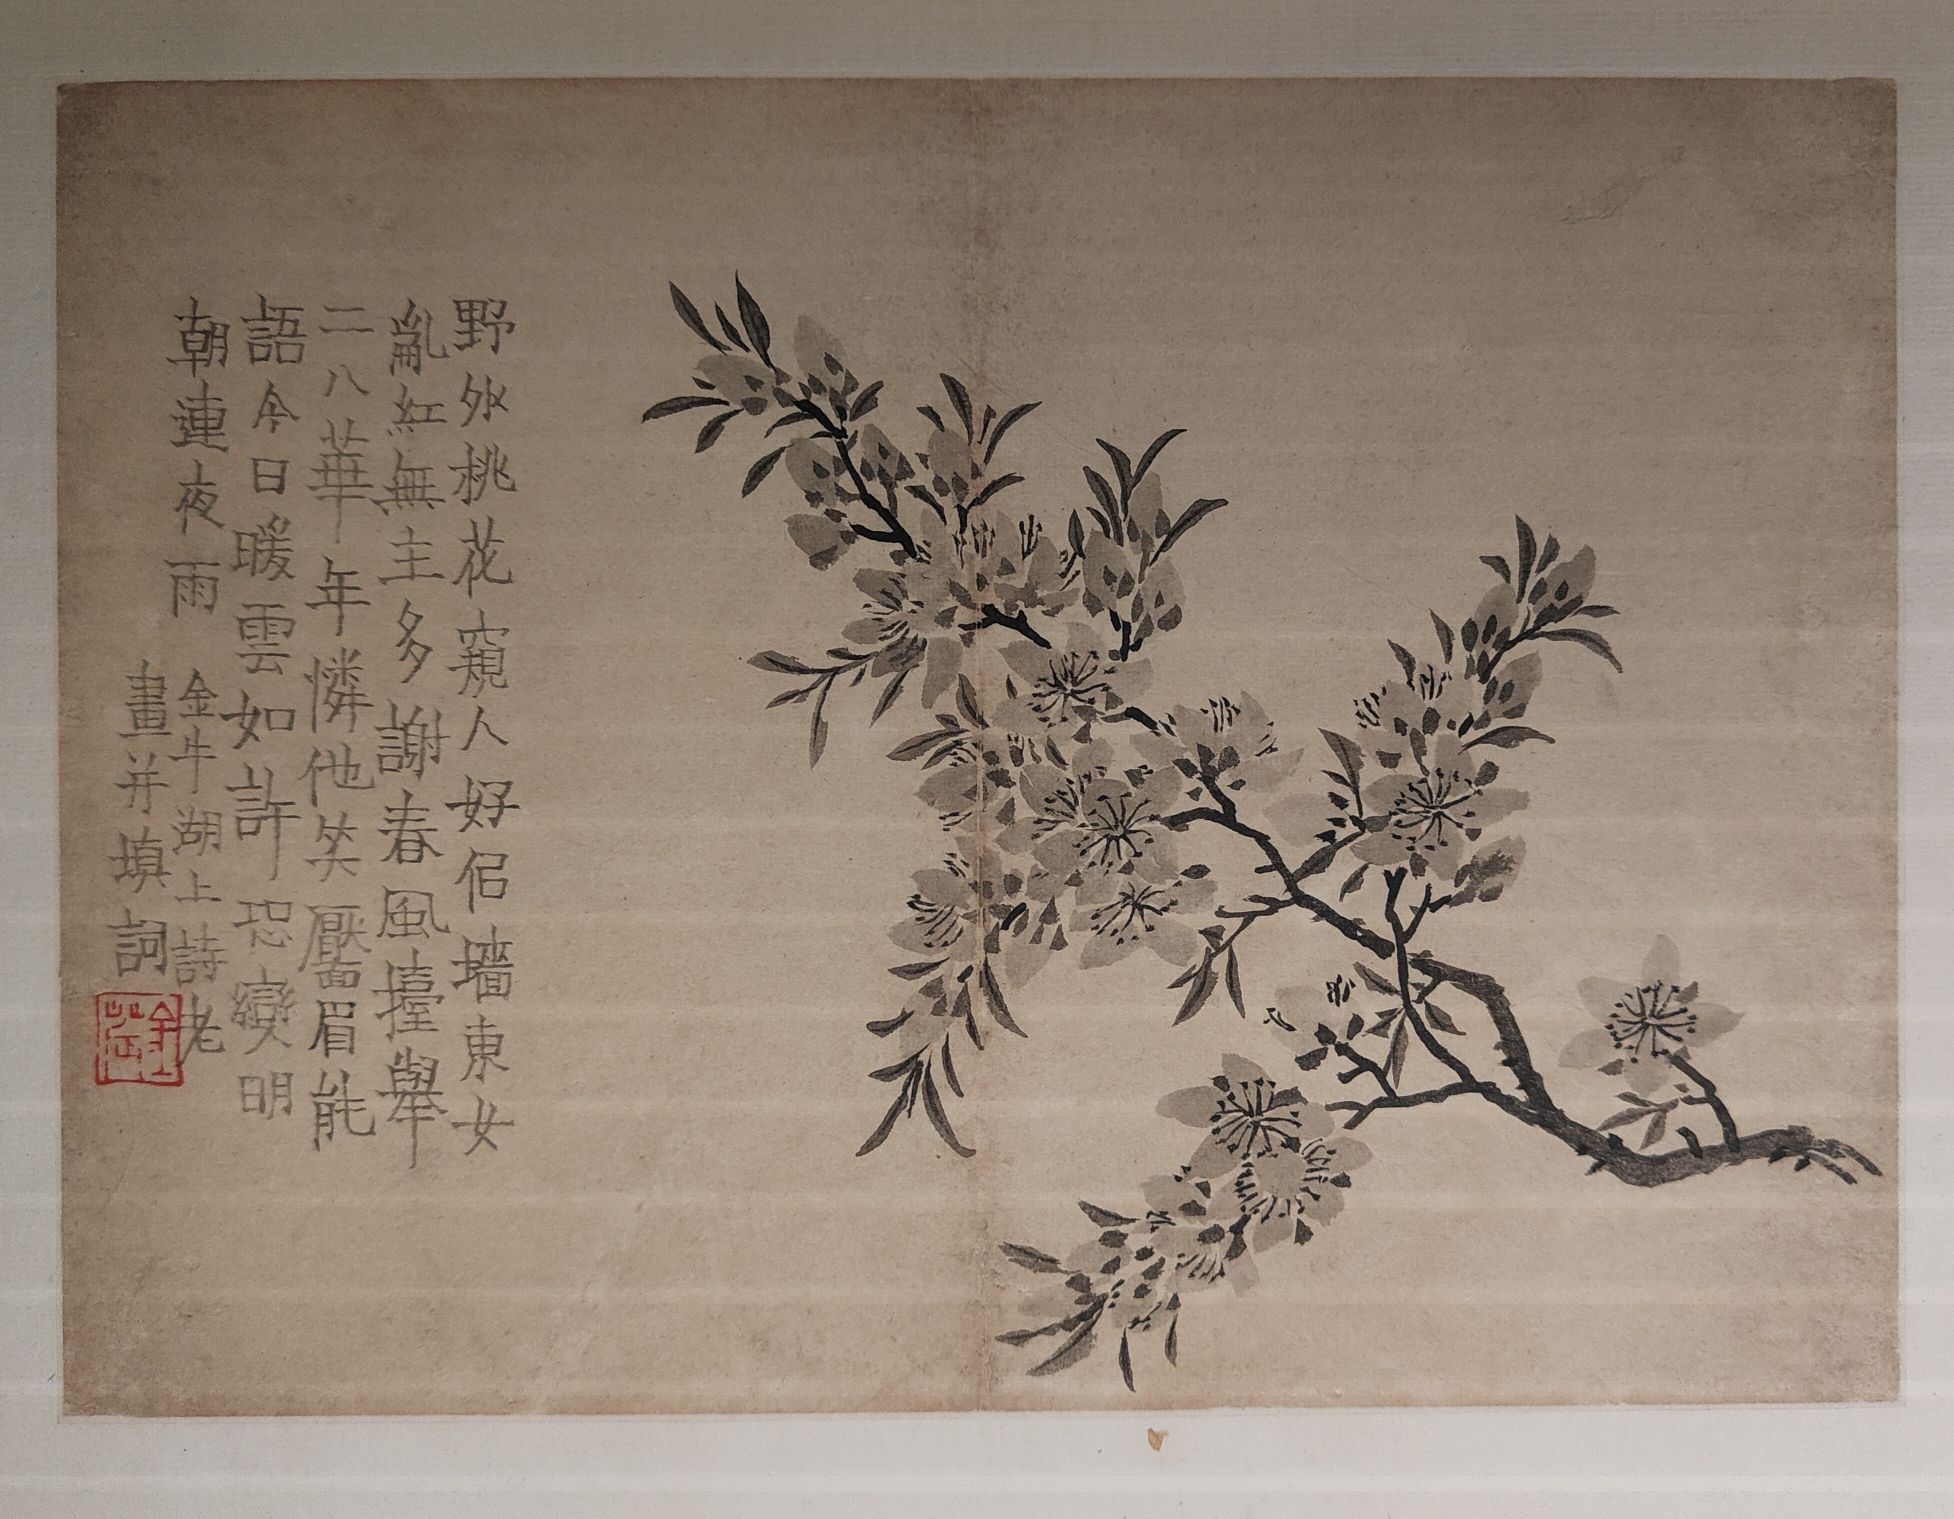 野外桃花窺人好侣墙東女
亂紅無主多謝春風擡舉
二八華年憐他笑靨眉能
語今日暖雲如許恐變明
朝連夜雨
金牛湖上詩老
畫并填詞